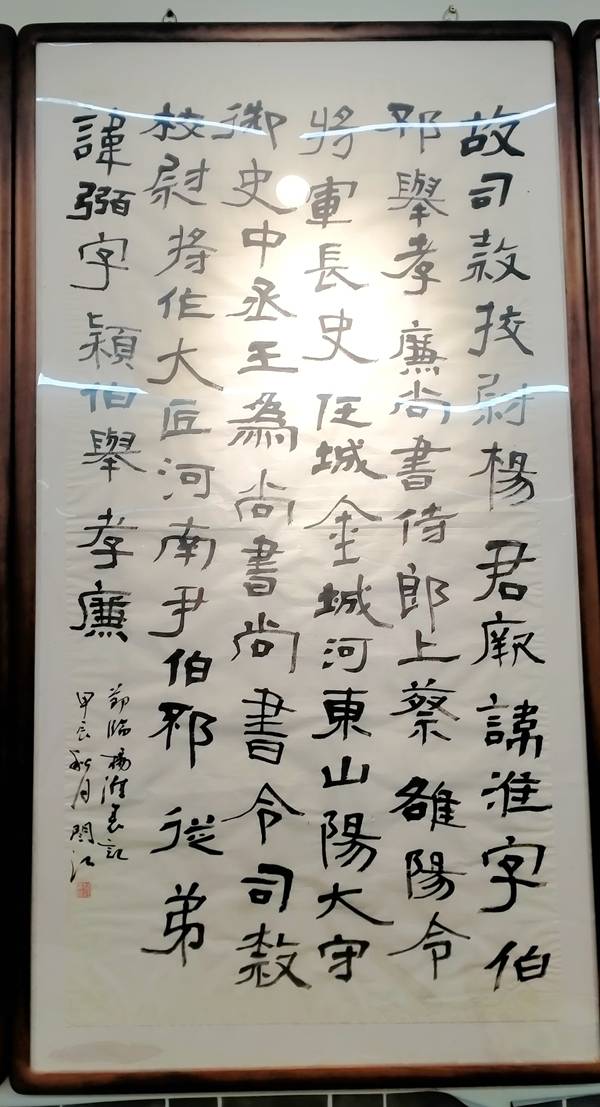 故司隸校尉楊君厥諱淮字伯
邳舉孝廉尚書侍郎上蔡雒陽令
將軍長史任城金城河東山陽大守
御史中丞三為尚書尚書令司隸
校尉將作大匠河南尹伯邳從弟
諱弼字穎伯舉孝廉
節臨楊淮表記
甲辰秋月閆江